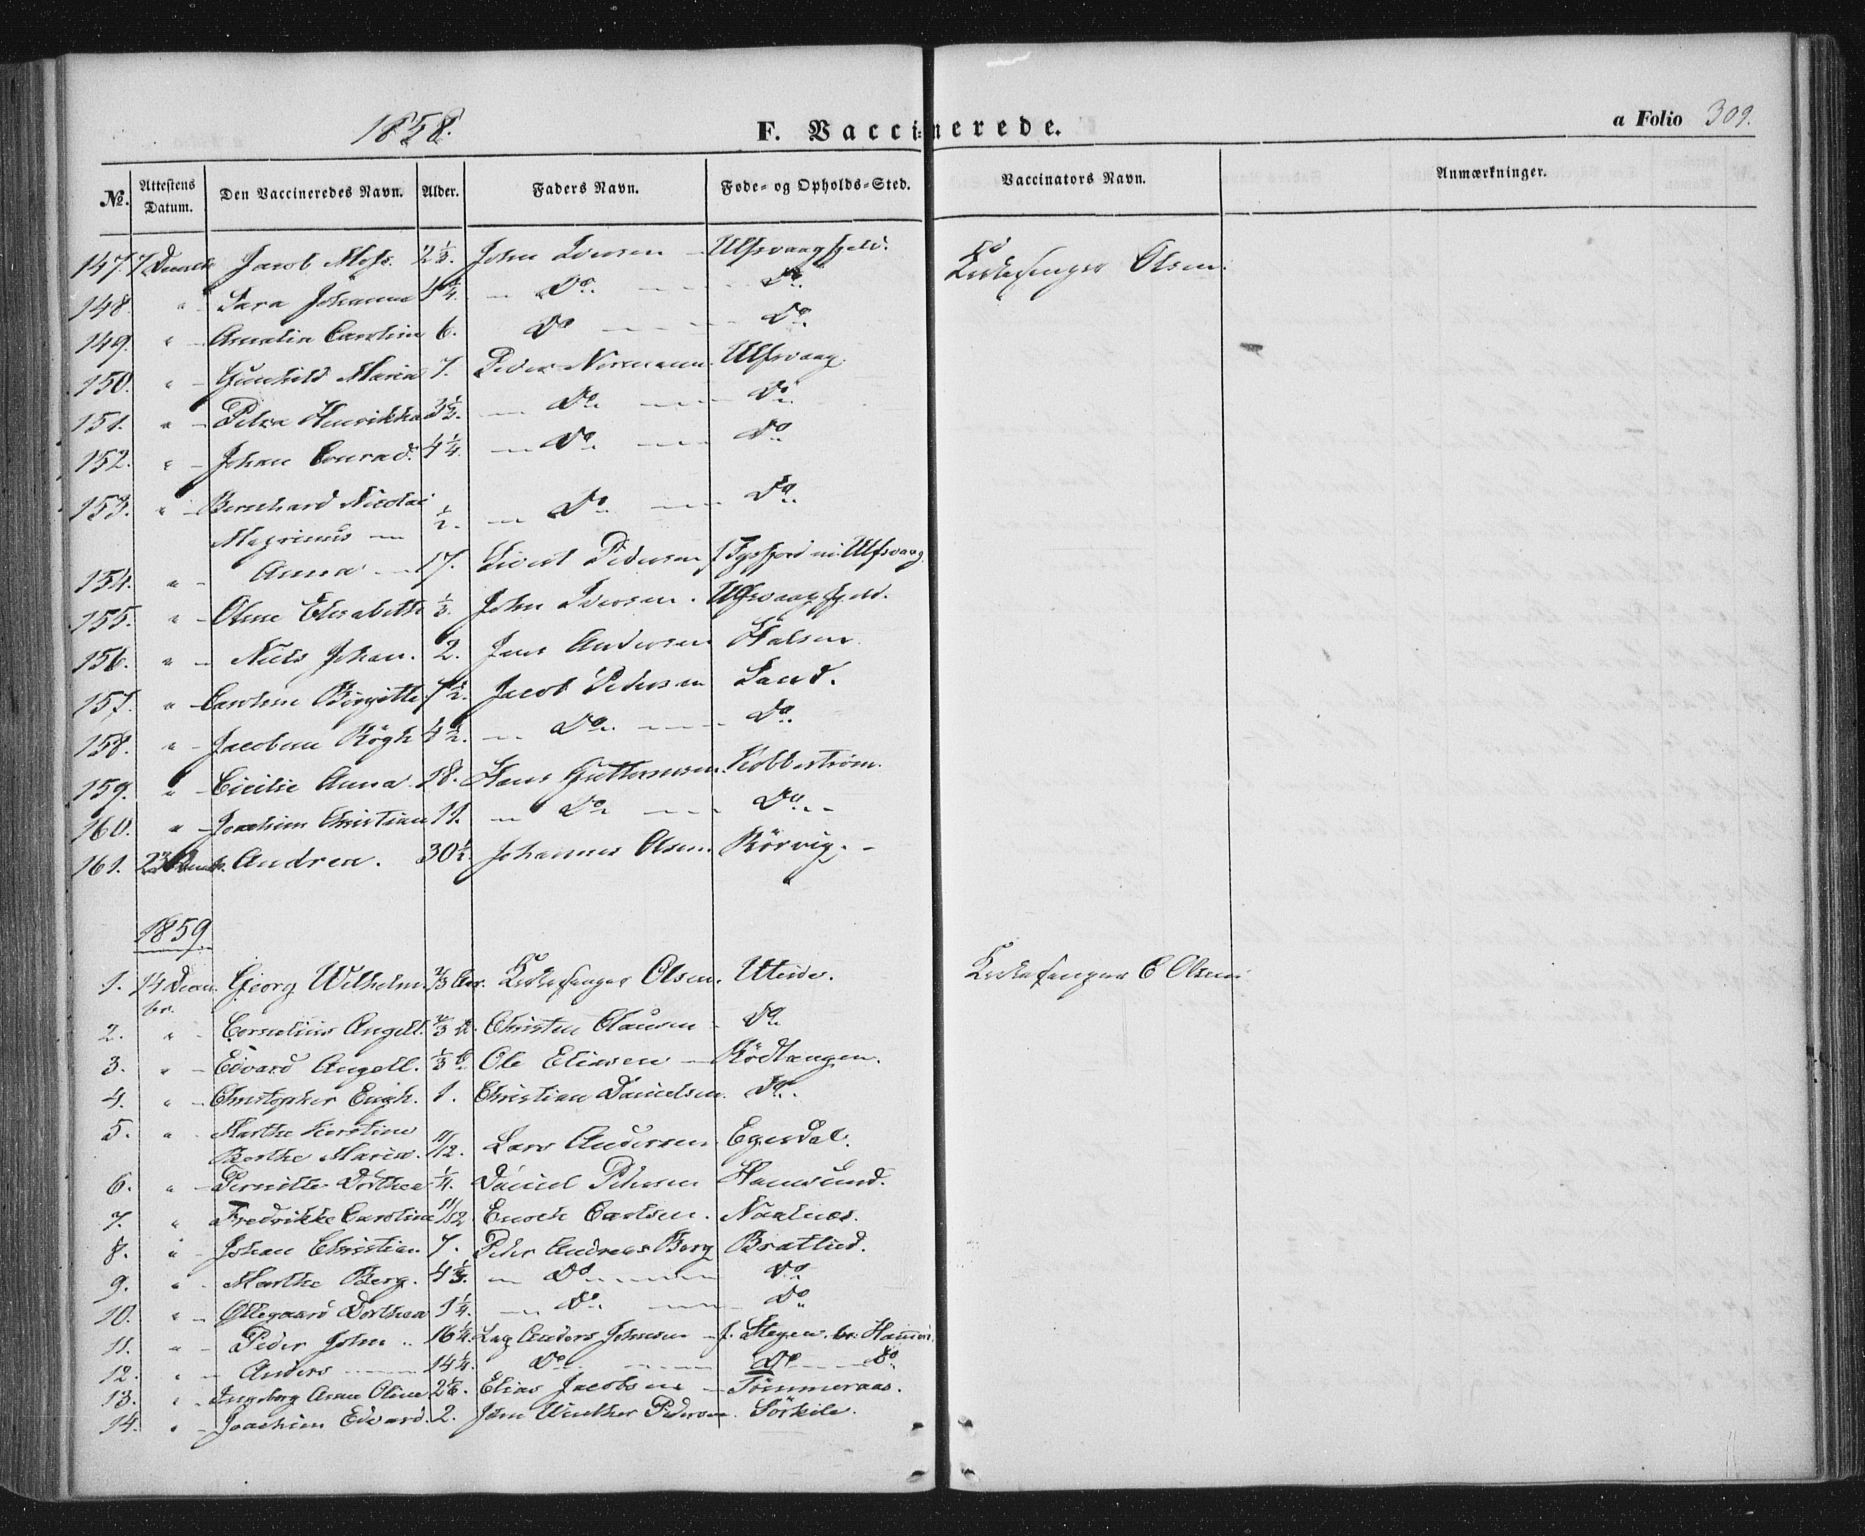 1858.
F. Vaccinerede.
a Folio 309.
№. Attestens Datum. Den Vaccineredes Navn. Alder. Faders Navn. Føde- og Opholds-Sted. Vaccinators Navn. Anmærkninger.
147. 7 Decembr Jacob Mofs. 2 1/3. John Iversen - Ulfsvaagfjeld. Kirkesanger Olsen.
148. " Sara Johanna 4 1/4. - Do. - Do.
149. " - Amalia Caroline 6. Do - Do.
150. " - Gunhild Maria 7. Peder Normann. Ulfsvaag.
151. " - Petra Henrikka 3 1/3. - Do. - Do.
152. " - Johan Conrad. 4 1/4. - Do. - Do
153. " - Bernhard Nicolai
Magnus - 1/2. - Do. - Do.
154. " - Anna - 17. Sivert Pedersen f Tysfjord in Ulfsvaag
155. " - Oline Elisabeth 1/3. John Iversen. Ulfsvaagfjeld.
156. " - Niels Johan. 2. Jens Andersen Halsen.
157. " - Caroline Birgitte. 7 1/2. Jacob Pedersen Sand.
158. " - Jacobine Rögh 4 1/2. - Do. - Do.
159. " - Cicilie Anna. 18. Hans Guttormsen. Kobbestrøm.
160. " - Joachim Christian 11. - Do - Do. -
161. 23 Decembr. Andrea. 30 1/2. Johannes Olsen. Rörvig. -
1859
1. 14 Decem- Georg Wilhelm. 2/3 Aar. Kirkesanger Olsen. Uteide. Kirkesanger C Olsen
br.
2. " Cornelius Angell. 2/3 Christen Clausen - Do.
3. " - Edvard Angell. 1/3 Ole Eliasen - Rödtangen.
4. " - Christopher Engh. 1. Christian Danielsen. Do.
5. " Marthe Kirstine
Berthe Maria. 11/12. Lars Andersen Egesdal.
6. " - Pernitte Dorthea 1/4. Daniel Petersen Hamsund.
7. " Fredrikke Caroline 11/12 Enoch Carlsen. Naalnes.
8. " - Johan Christian 7. Peder Andreas Berg Bratlied.
9. " - Marthe Berg. 4 1/3. - Do. - Do
10. " - Ollegaard Dorthea 1 1/4. - Do. - Do
11. " - Peder John .. 16 1/4. Lap Anders Johnsen - f. Stegen. br. Hamerö.
12. " - Anders - 14 1/4. Do. - Do - do.
13. " - Ingeborg Anna Oline 2 1/6. Elias Jacobsen - Tömmeraas.
14. " - Joachim Edvard. 2. John Winther Pedersen. Sörkile.